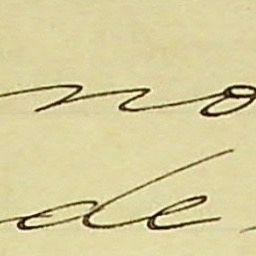 no
de